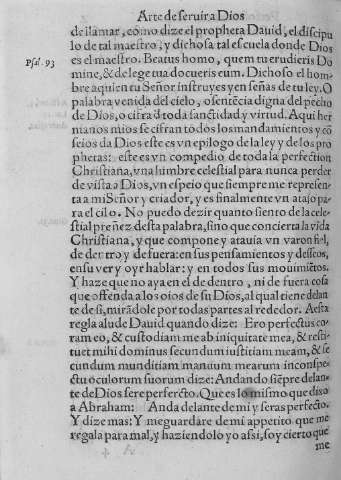 Arte de seruir a Dios
de llamar, como dize el propheta Dauid, el discipu
lo de tal maestro, y dichosa tal escuela donde Dios
Psal. 93
es el maestro. Beatus homo, quem tu erudieris Do
mine, & de lege tua docueris eum. Dichoso el hom
bre a quien tu Señor instruyes y enseñas de tu ley. O
palabra venida del cielo, o sentẽcia digna del pecho
de Dios, o cifra d̃ toda sanctidad y virtud. Aqui her
manos mios se cifran todos los mandamientos y cõ
sejos da Dios este es vn epilogo de la ley y de los pro
phetas: este es vn compẽdio de toda la perfection
Christiana, vna lumbre celestial para nunca perder
de vista a Dios, vn espejo que siempre me represen
ta a mi Señor y criador, y es finalmente vn atajo pa
ra el cilo. No puedo dezir quanto siento de la cele-
stial preñez desta palabra, sino que concierta la vida
Christiana, y que compone y atauia vn varon fiel,
de dentro y de fuera: en sus pensamientos y desseos,
en su ver y oyr hablar: y en todos sus mouimiẽtos.
Y haze que no aya en el de dentro, ni de fuera cosa
que offenda a los ojos de su Dios, al qual tiene delan
te de si, mirãdole por todas partes al rededor. A esta
regla alude Dauid quando dize: Ero perfectus co
ram eo, & custodiam me ab iniquitate mea, & resti-
tuet mihi dominus secundum iustitiam meam, & se
cundum munditiam manuum mearum in conspe-
ctu oculorum suorum dize: Andando siẽpre delan-
te de Dios sere perfecto. Que es lo mismo que dixo
a Abraham: Anda delante de mi y seras perfecto.
Y dize mas: Y me guardare de mi appetito que me
regala para mal, y haziendolo yo assi, soy cierto que
me